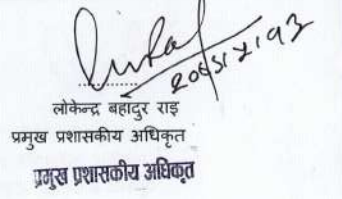 २०७९।५।१२
लोकेन्द्र बहादुर राइ
प्रमुख प्रशासकीय अधिकृत
प्रमुख प्रशासकीय अधिकृत